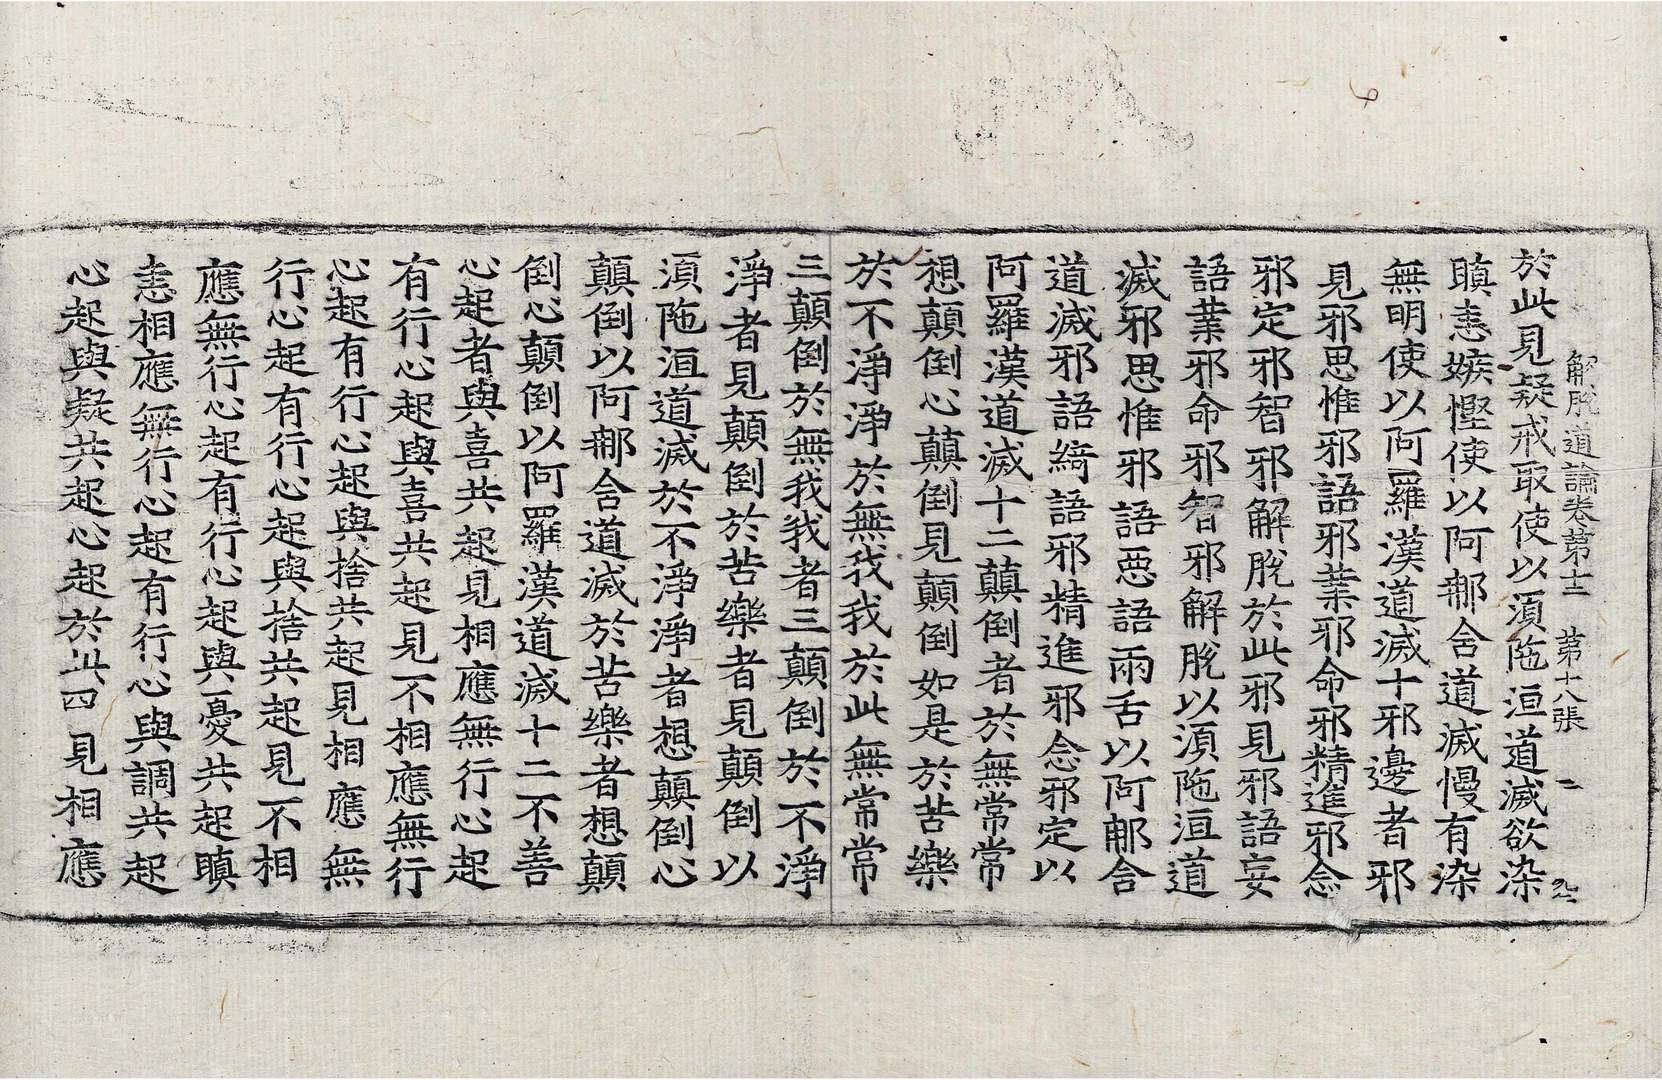 解脫道論卷第十二 第十八張 二
於此見疑戒取使以須陁洹道滅欲染
瞋恚嫉慳使以阿那含道滅慢有染
無明使以阿羅漢道滅十邪邊者邪
見邪思惟邪語邪業邪命邪精進邪念
邪定邪智邪解脫於此邪見邪語妄
語業邪命邪智邪解脫以須陁洹道
滅邪思惟邪語惡語兩舌以阿那含
道滅邪語綺語邪精進邪念邪定以
阿羅漢道滅十二顛倒者於無常常
想顛倒心顛倒見顛倒如是於苦樂
於不淨淨於無我我於此無常常
三顛倒於無我我者三顛倒於不淨
淨者見顛倒於苦樂者見顛倒以
須陁洹道滅於不淨淨者想顛倒心
顛倒以阿那含道滅於苦樂者想顛
倒心顛倒以阿羅漢道滅十二不善
心起者與喜共起見相應無行心起
有行心起與喜共起見不相應無行
心起有行心起與捨共起見相應無
行心起有行心起與捨共起見不相
應無行心起有行心起與憂共起瞋
恚相應無行心起有行心與調共起
心起與疑共起心起於此四見相應